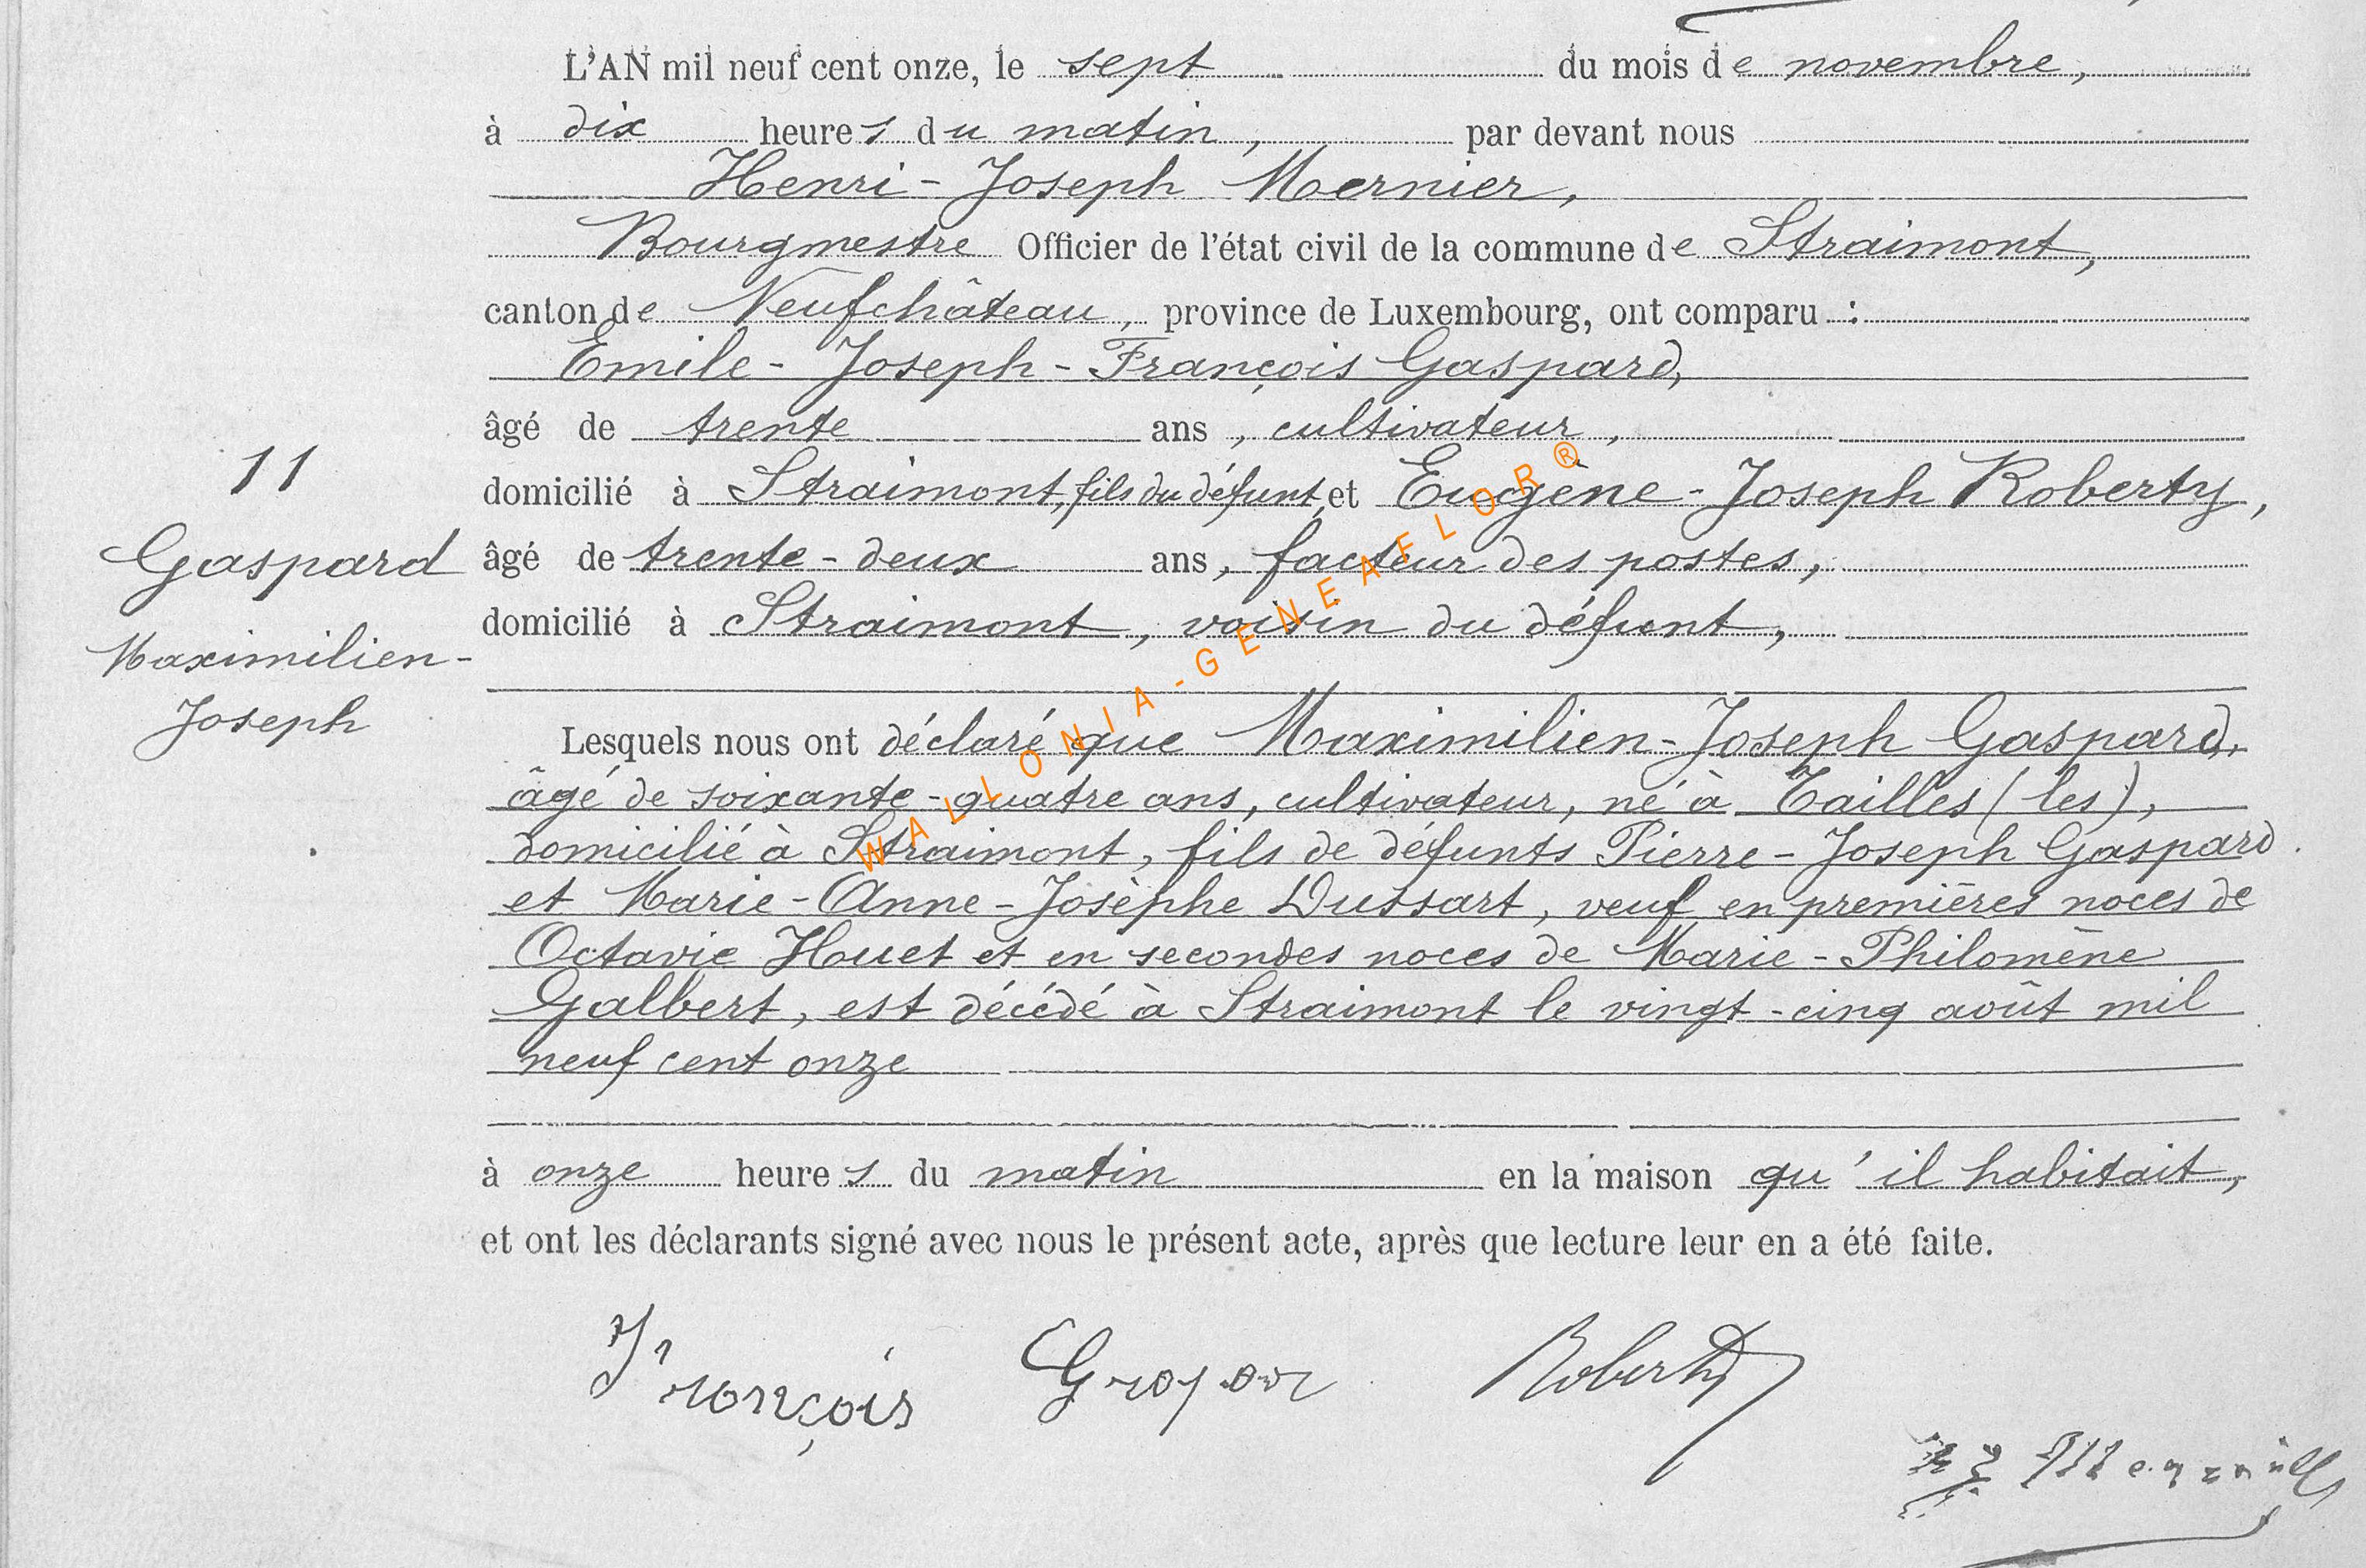 L'AN mil neuf cent onze, le sept du mois de novembre,
à dix heures du matin, par devant nous
Henri-Joseph Mernier,
Bourgmestre Officier de l'état civil de la commune de Straimont,
canton de Neufchâteau, province de Luxembourg, ont comparu :
Emile-Joseph-François Gaspard,
âgé de trente ans, cultivateur,
domicilié à Straimont, fils du défunt, et Eugène-Joseph Roberty,
âgé de trente-deux ans, facteur des postes,
domicilié à Straimont, voisin du défunt,
11
Gaspard
Maximilien-
Joseph
Lesquels nous ont déclaré que Maximilien-Joseph Gaspard,
âgé de soixante-quatre ans, cultivateur, né à Tailles (les),
domicilié à Straimont, fils de défunts Pierre-Joseph Gaspard
et Marie-Anne-Josèphe Dussart, veuf en premières noces de
Octavie Huet et en secondes noces de Marie-Philomène
Galbert, est décédé à Straimont le vingt-cinq août mil
neuf cent onze
à onze heures du matin en la maison qu'il habitait,
et ont les déclarants signé avec nous le présent acte, après que lecture leur en a été faite.
François Gaspar Roberty
WALLONIA-GENEAFLOR®